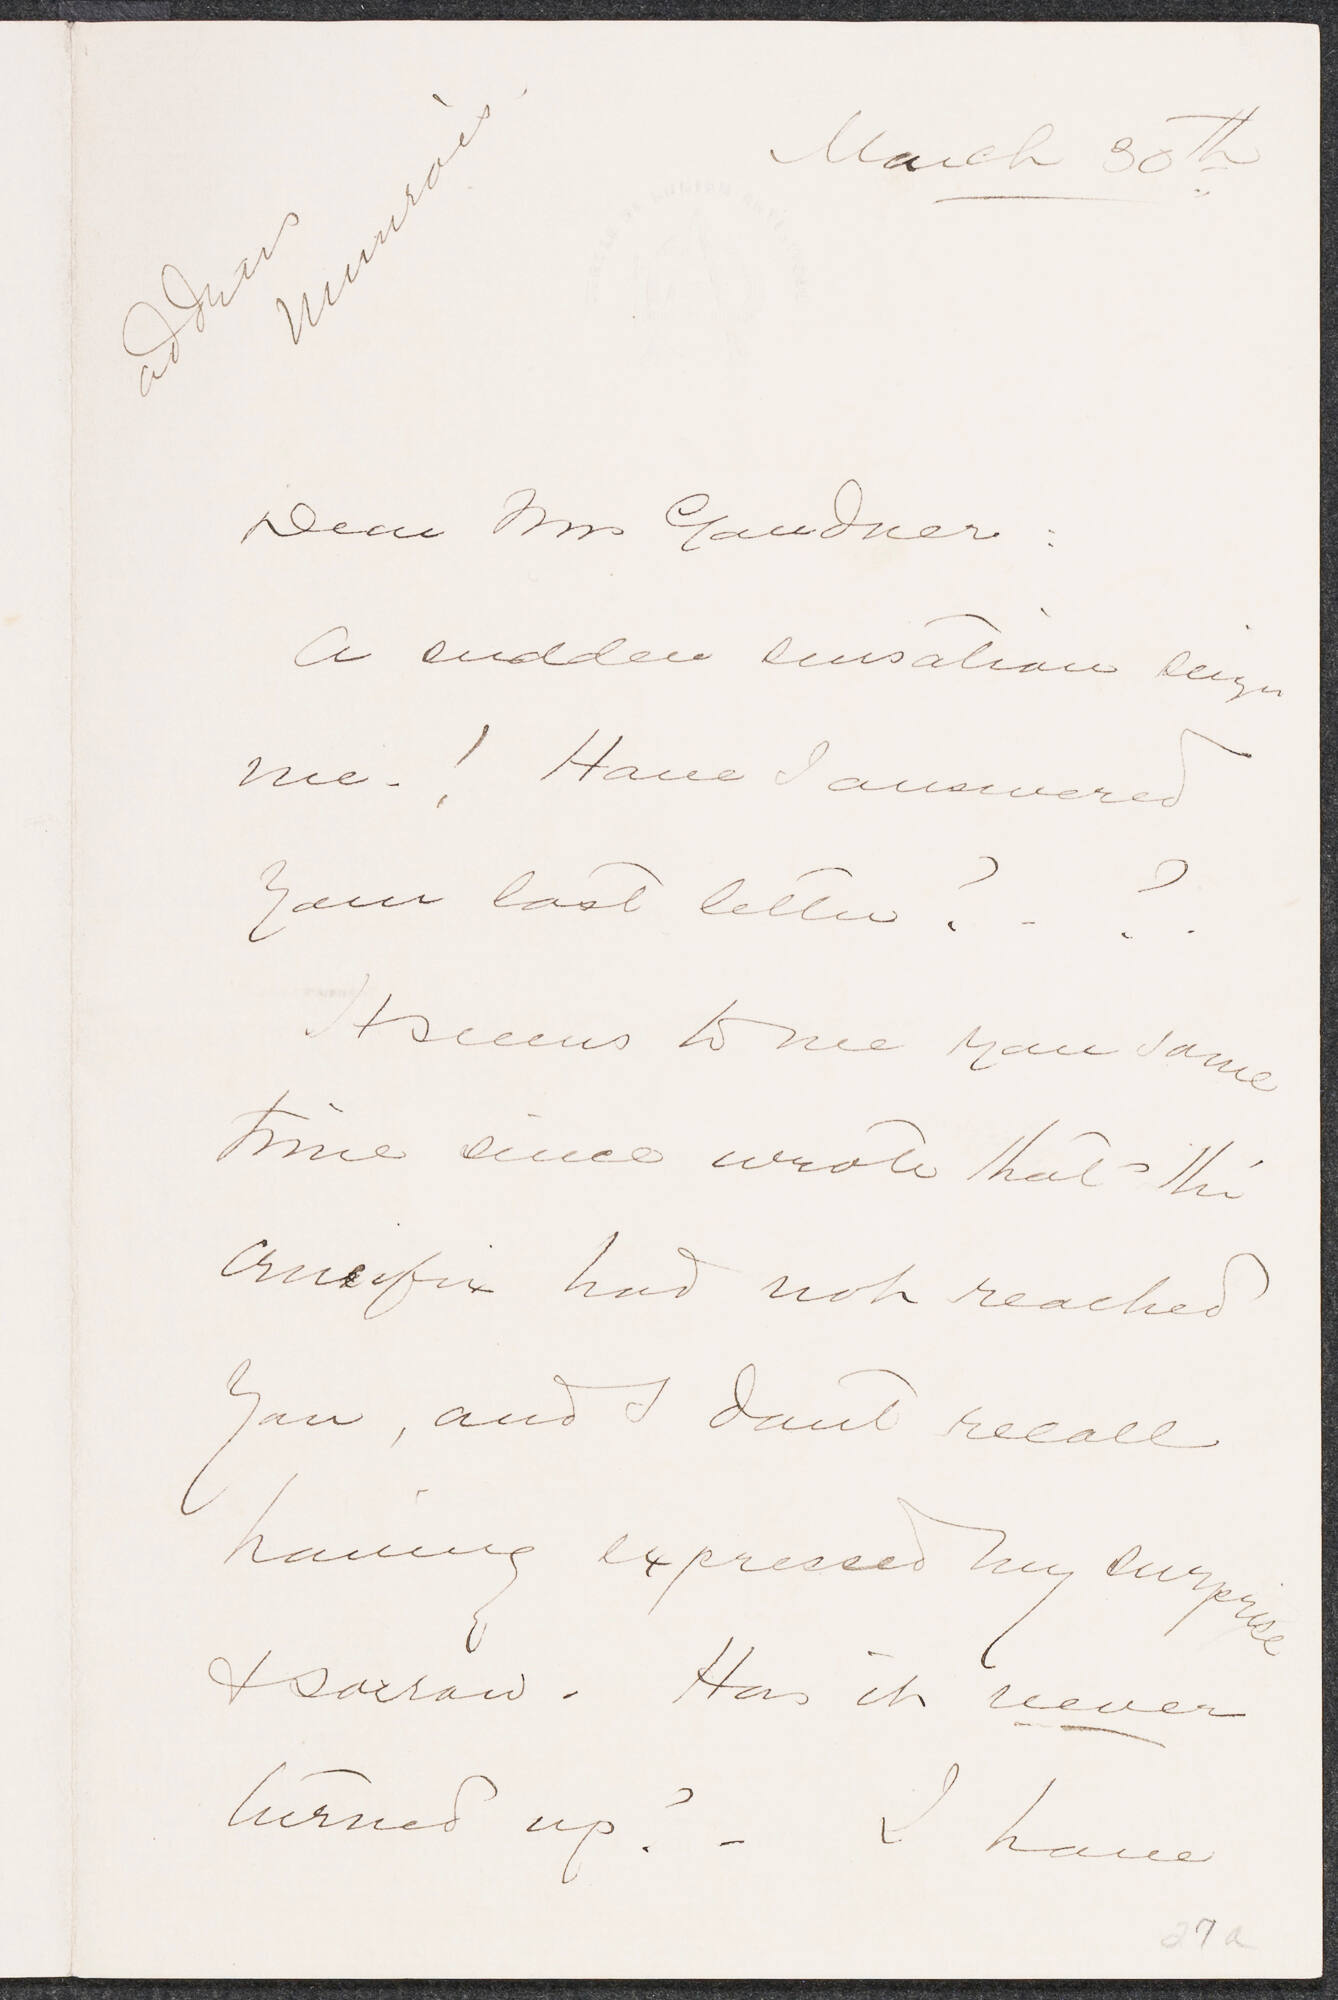 March 30th
address
Munroe's
Dear Mrs Gardner:
A sudden sensation seizes
me-! Have I answered
your last letter? - ?.
It seems to me you some
time since wrote that the
crucifix had not reached
you, and I don't recall
having expressed my surprise
& sorrow. Has it never
turned up? - I have
27a